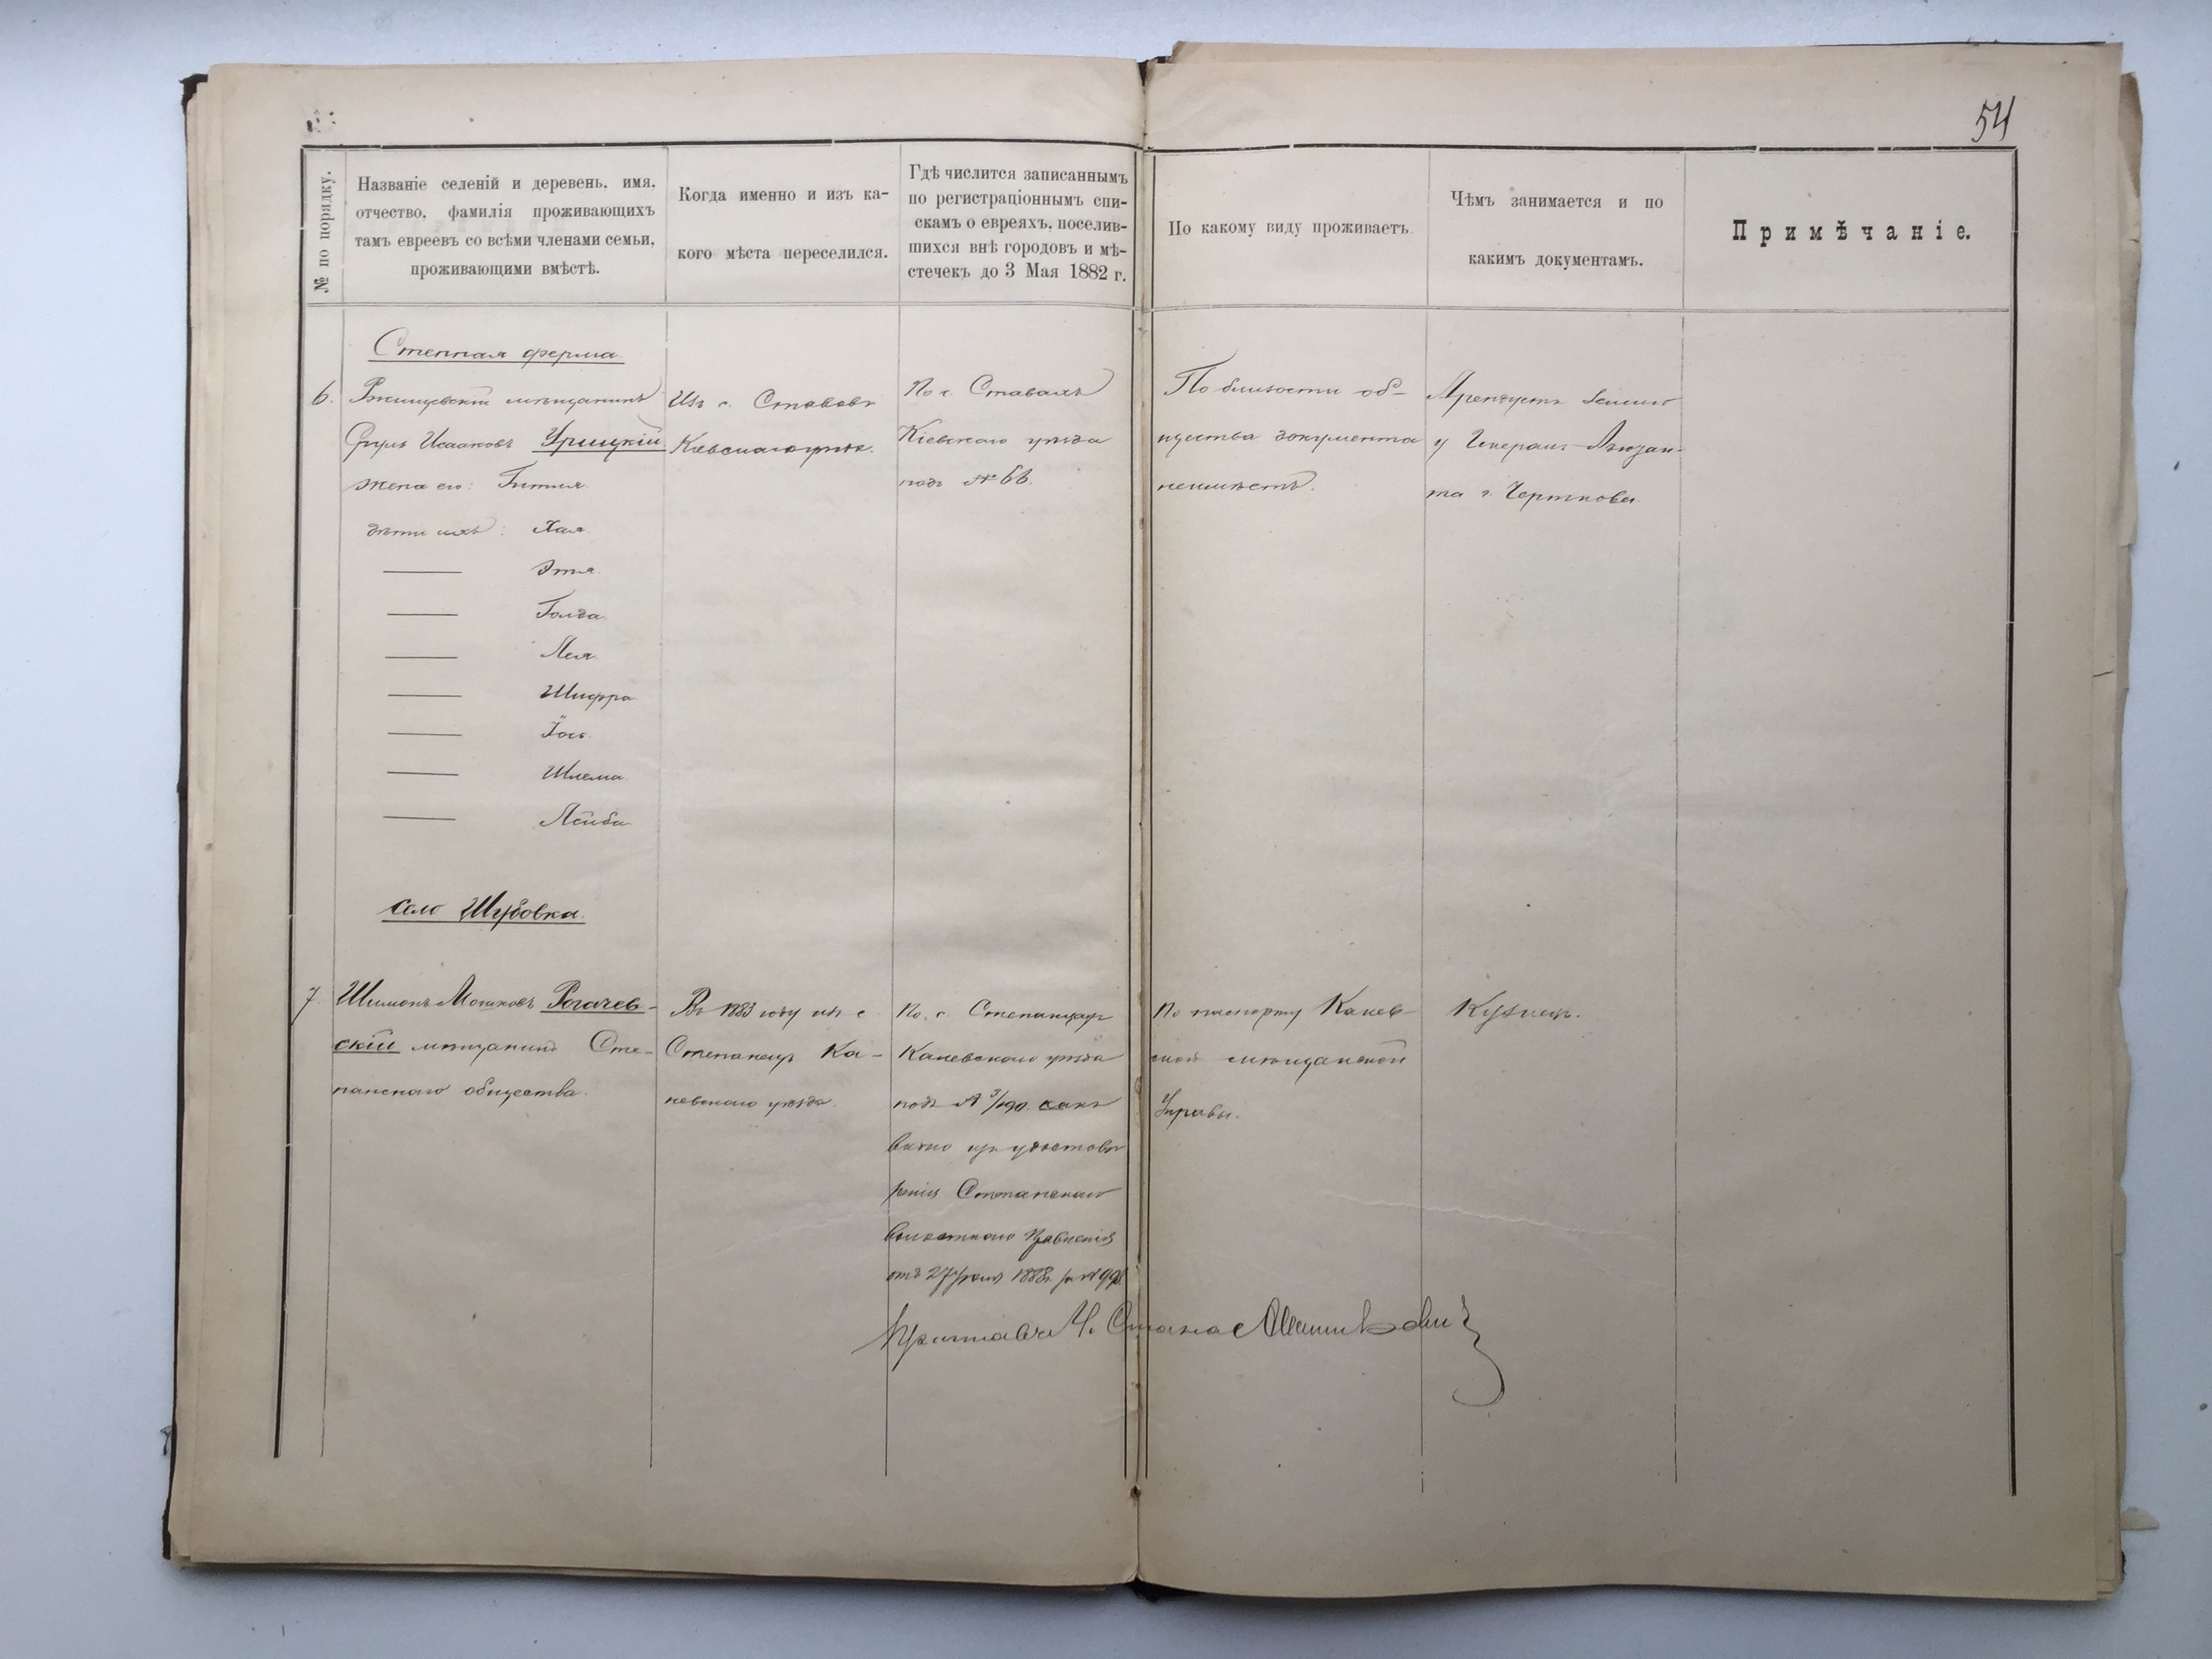 54
№ по порядку.
Названіе селеній и деревень, имя,
отчество, фамилія проживающихъ
тамъ евреевъ со всѣми членами семьи,
проживающими вмѣстѣ.
Когда именно и изъ ка-
кого мѣста переселился.
Гдѣ числится записаннымъ
по регистраціоннымъ спи-
скамъ о евреяхъ, поселив-
шихся внѣ городовъ и мѣ-
стечекъ до 3 Мая 1882 г.
По какому виду проживаетъ.
Чѣмъ занимается и по
какимъ документамъ.
Примѣчаніе.
Степная ферма.
6.
Ржищевскій мѣщанинъ
Сруль Исааковъ Урицкій
жена его: Гитля
дѣти ихъ: Хая
Этя.
Голда
Лея.
Шифра
Іось.
Шлема
Лейба
Изъ с. Ставовъ
Кіевскаго уѣз.
По с. Ставахъ
Кіевскаго уѣзда
подъ № 66.
По близости об-
щества документа
неимѣетъ.
Арендуетъ землю
у Генералъ-Адъютан-
та г. Черткова.
село Шубовка.
7.
Шимонъ Мошковъ Рогачев-
скій мѣщанинъ Сте-
панскаго общества.
Въ 1883 году изъ с
Степанецъ Ка-
невскаго уѣзда.
По с. Степанцахъ
Каневскаго уѣзда
подъ № 3/190. какъ
видно изъ удостовѣ
ренія Степанскаго
волостного Правленія
отъ 27 1888г. за №
По паспорту Канев-
ской мѣщанской
Управы.
Кузнецъ.